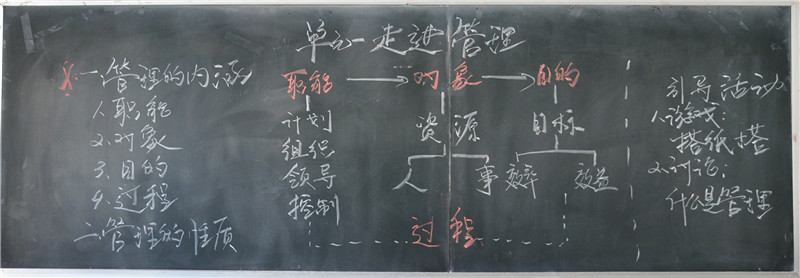 单元一 走进管理
一.管理的内涵
1.职能
2.对象
3.目的
4.过程
二.管理的性质
职能 → 对象 → 目的
计划
组织
领导
控制
资源
人 事
目标
效率 效益
过程
引导活动
1.游戏:
搭纸塔
2.讨论:
什么是管理